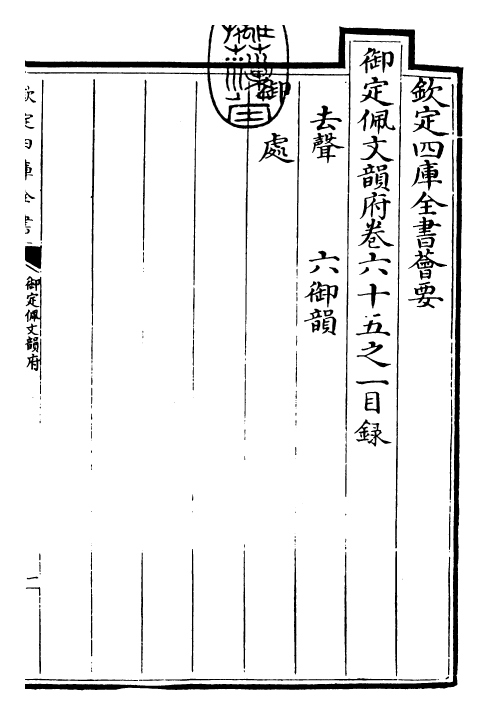 欽定四庫全書薈要
御定佩文韻府卷六十五之一目録
去聲 六御韻
御
處
欽定四庫全書
御定佩文韻府
一